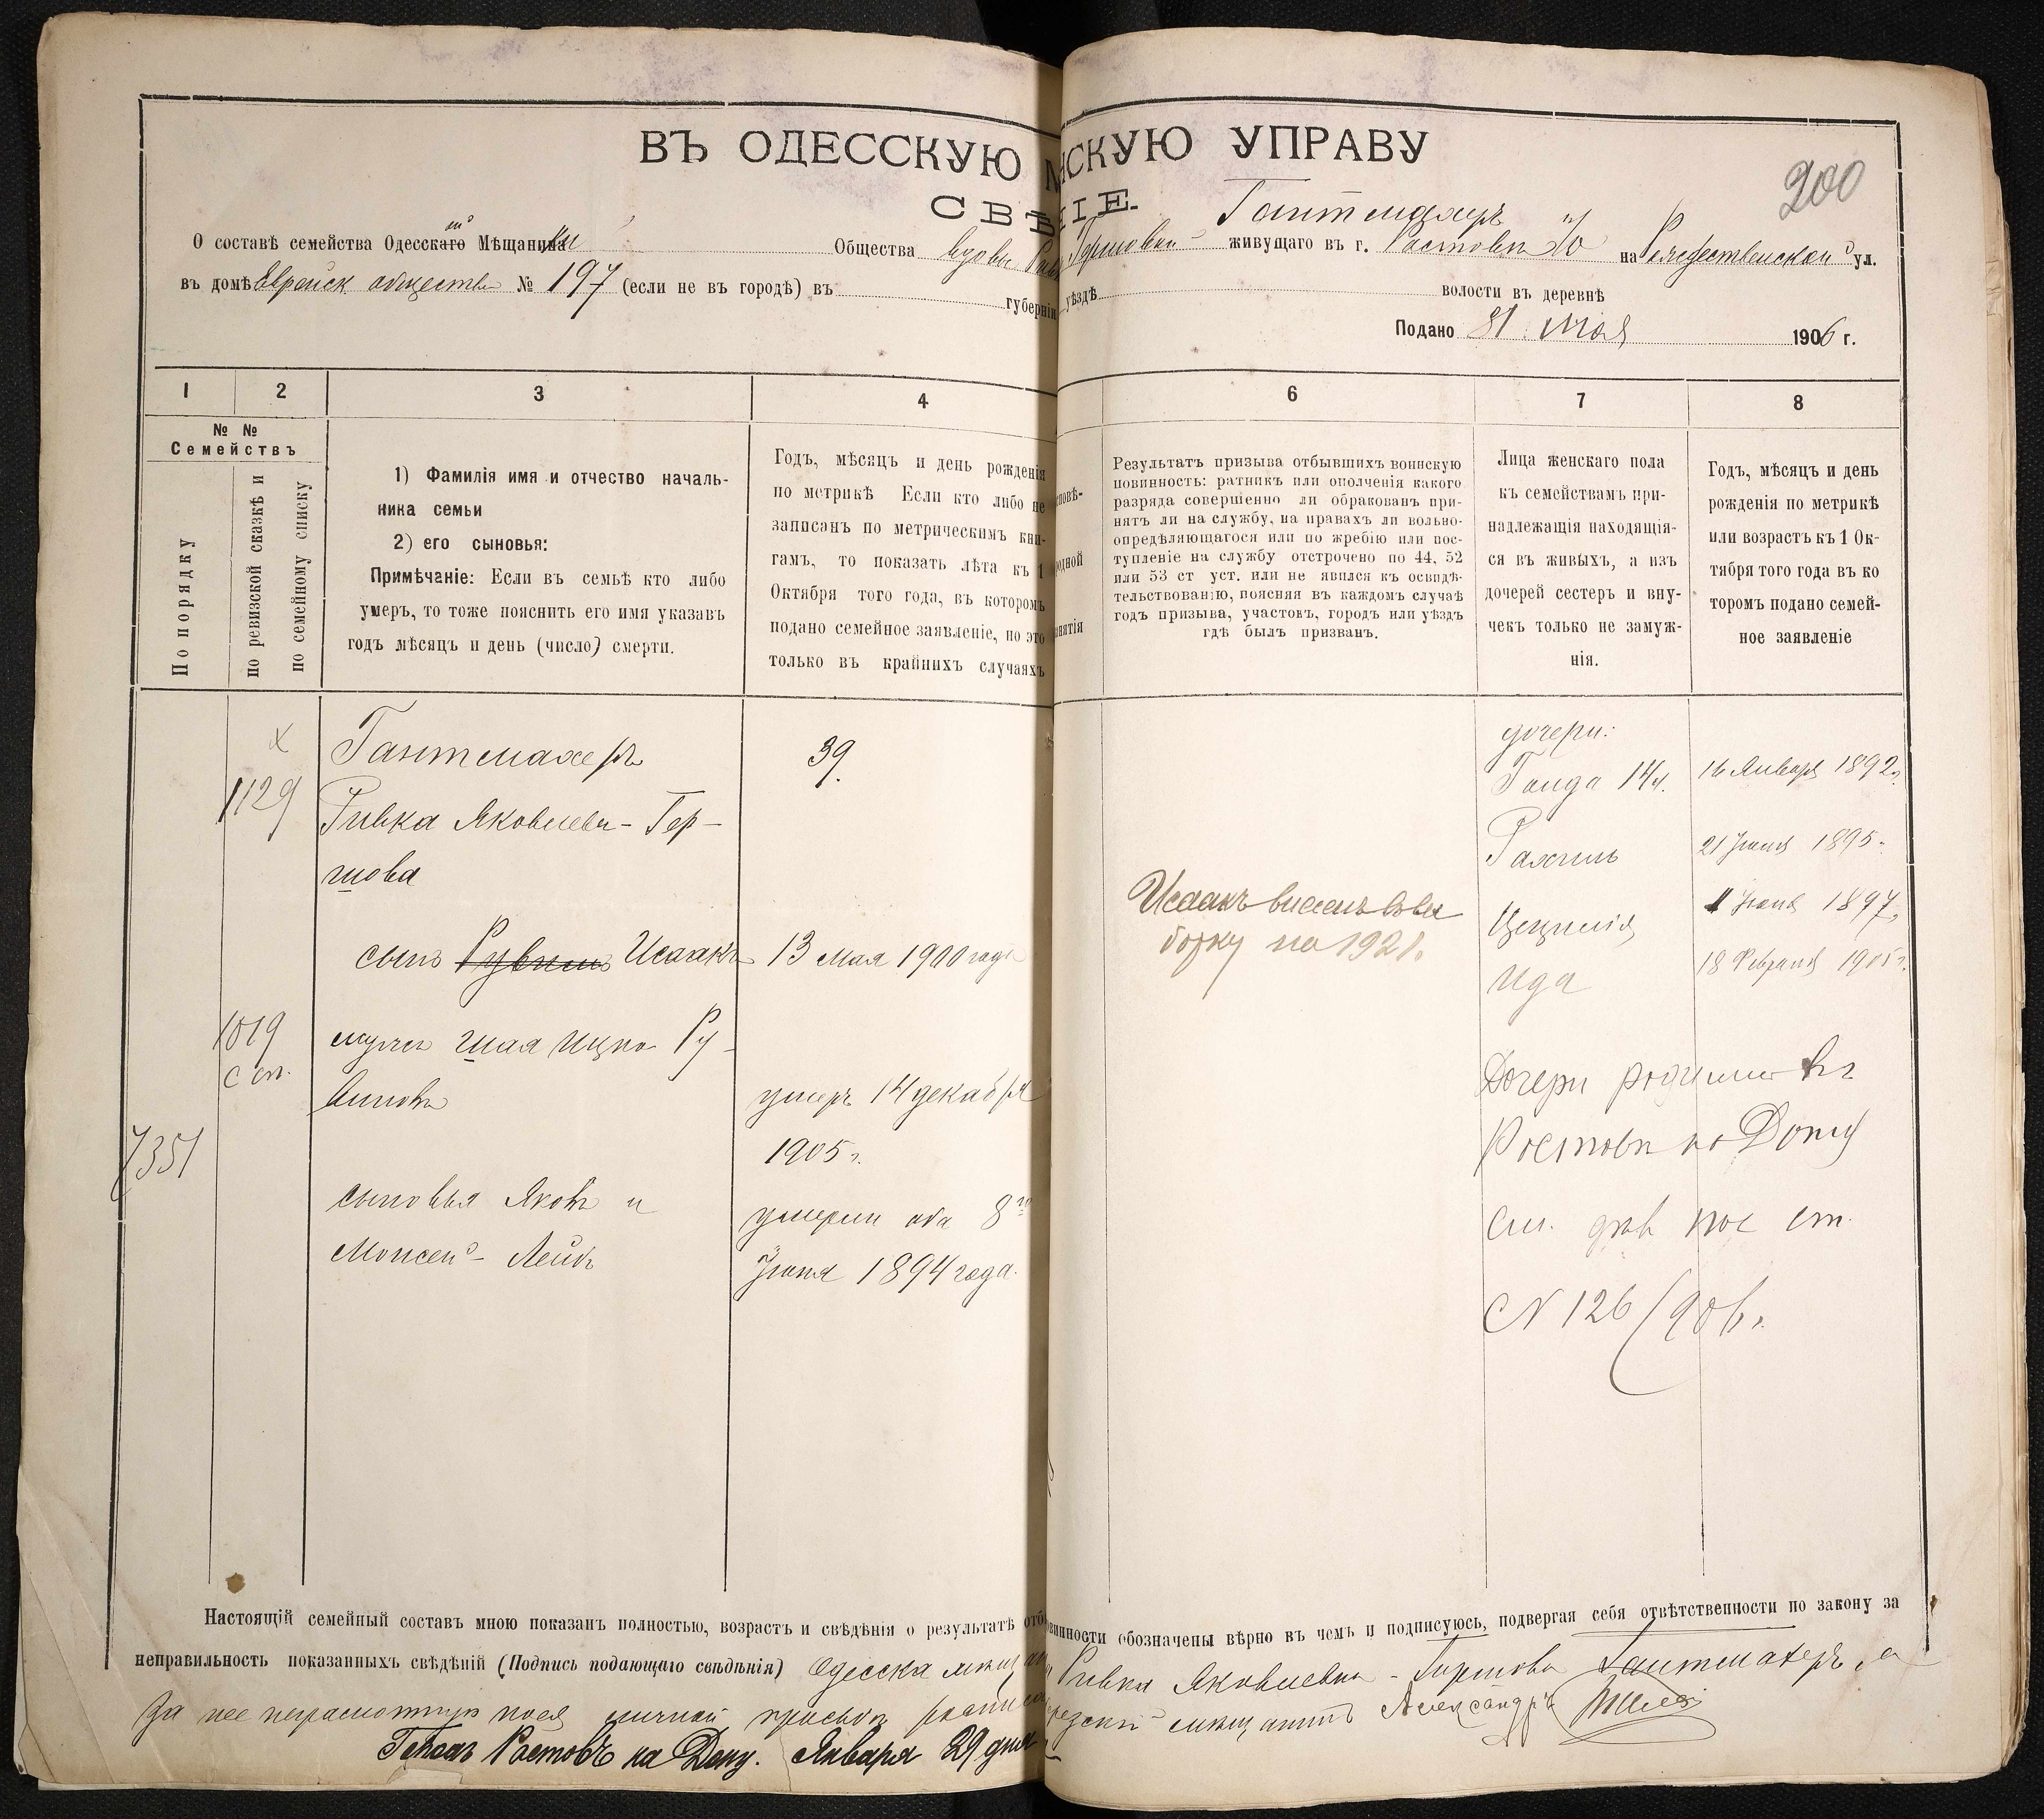 ВЪ ОДЕССКУЮ М НСКУЮ УПРАВУ
200
СВѢ НІЕ.
Гантмахеръ
О составѣ семейства Одесскаго ой Мѣщанина ки Общества вдовы Рив Гершовой живущаго въ г. Ростовѣ н/Д на Рождественской ул.
въ домѣ Еврейск общества № 197 (если не въ городѣ) въ губерніи уѣздѣ волости въ деревнѣ
Подано 31 Мая 1906 г.
1 2 3 4 6 7 8
№ № Семействъ
По порядку
по ревизской сказкѣ и
по семейному списку
1) Фамилія имя и отчество началь-
ника семьи
2) его сыновья:
Примѣчаніе: Если въ семьѣ кто либо
умеръ, то тоже пояснить его имя указавъ
годъ мѣсяцъ и день (число) смерти.
Годъ, мѣсяцъ и день рожденія
по метрикѣ Если кто либо не
записанъ по метрическимъ кни-
гамъ, то показать лѣта къ 1
Октября того года, въ которомъ
подано семейное заявленіе, но это
только въ крайнихъ случаяхъ
сповѣ-
родной
анятія
Результатъ призыва отбывшихъ воинскую
повинность: ратникъ или ополченія какого
разряда совершенно ли обракованъ при-
нятъ ли на службу, на правахъ ли вольно-
опредѣляющагося или по жребію или пос-
тупленіе на службу отстрочено по 44, 52
или 53 ст уст. или не явился къ освидѣ-
тельствованію, поясняя въ каждомъ случаѣ
годъ призыва, участокъ, городъ или уѣздъ
гдѣ былъ призванъ.
Лица женскаго пола
къ семействамъ при-
надлежащія находящія-
ся въ живыхъ, а изъ
дочерей сестеръ и вну-
чекъ только не замуж-
нія.
Годъ, мѣсяцъ и день
рожденія по метрикѣ
или возрастъ къ 1 Ок-
тября того года въ ко
торомъ подано семей-
ное заявленіе
х
1129
Гантмахеръ
39.
Ривка Яковлева - Гер-
шова
сынъ Рувинъ Исаакъ 13 мая 1900 года
1019
с сп.
мужъ Шая Ицко Ру-
виновъ
умеръ 14 декабря
1905 г.
7351
сыновья Яковъ и
Моисей - Лейбъ
умерли оба 8го
Іюня 1894 года.
Исаакъ внесенъ въ вы
борку на 1921.
дочери:
Голда 14 л. 16 Января 1892 г.
Рахиль 21 Іюня 1895 г.
Цецилія 1 Іюня 1897 г.
Ида 18 Февраля 1905 г.
Дочери родились въ
Ростовѣ на Дону
См. дѣв пос ст.
N 126/906 г.
Настоящій семейный составъ мною показанъ полностью, возрастъ и свѣдѣнія о результатѣ отб винности обозначены вѣрно въ чемъ и подписуюсь, подвергая себя отвѣтственности по закону за
неправильность показанныхъ свѣдѣній (Подпись подающаго свѣдѣнія) Одесска мѣщан Ривка Яковлевна - Гершова Гантмахеръ, а
За нее неграмотную по ея личной просьбѣ росписа мѣщанинъ Александръ
Городъ Ростовъ на Дону. Января 29 дня